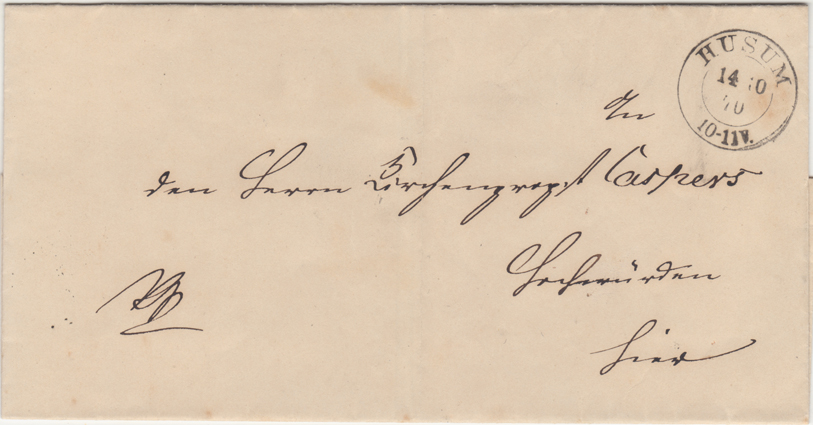 HUSUM
14 10
70
10-11V.
An
den Herrn Kirchenpropst Caspers
Hochwürden
hier